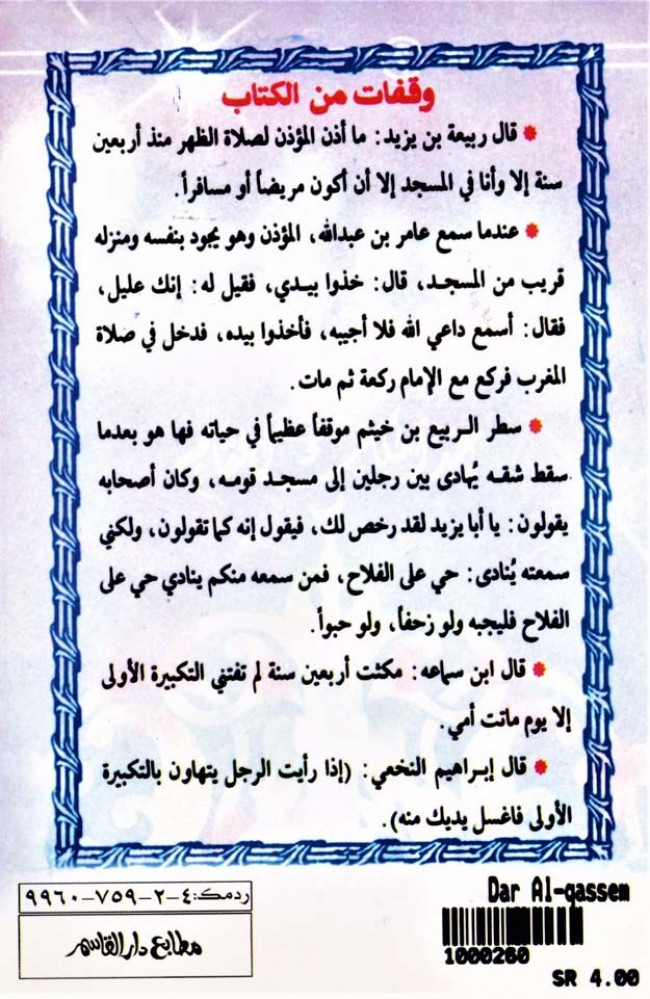 وقفات من الكتاب
* قال ربيعة بن يزيد: ما أذن المؤذن لصلاة الظهر منذ أربعين
سنة إلا وأنا في المسجد إلا أن أكون مريضاً أو مسافراً.
* عندما سمع عامر بن عبدالله، المؤذن وهو يجود بنفسه ومنزله
قريب من المسجد، قال: خذوا بيدي، فقيل له: إنك عليل،
فقال: أسمع داعي الله فلا أجيبه، فأخذوا بيده، فدخل في صلاة
المغرب فركع مع الإمام ركعة ثم مات.
* سطر الربيع بن خيثم موقفاً عظيماً في حياته فها هو بعدما
سقط شقه يُهادى بين رجلين إلى مسجد قومه، وكان أصحابه
يقولون: يا أبا يزيد لقد رخص لك، فيقول إنه كما تقولون، ولكني
سمعته يُنادى: حي على الفلاح، فمن سمعه منكم ينادي حي على
الفلاح فليجبه ولو زحفاً، ولو حبواً.
* قال ابن سماعه: مكثت أربعين سنة لم تفتني التكبيرة الأولى
إلا يوم ماتت أمي.
* قال إبراهيم النخعي: (إذا رأيت الرجل يتهاون بالتكبيرة
الأولى فاغسل يديك منه).
ردمك: ٤-٢-٧٥٩-٩٩٦٠
مطابع دار القاسم
Dar Al-qassem
1000260
SR 4.00